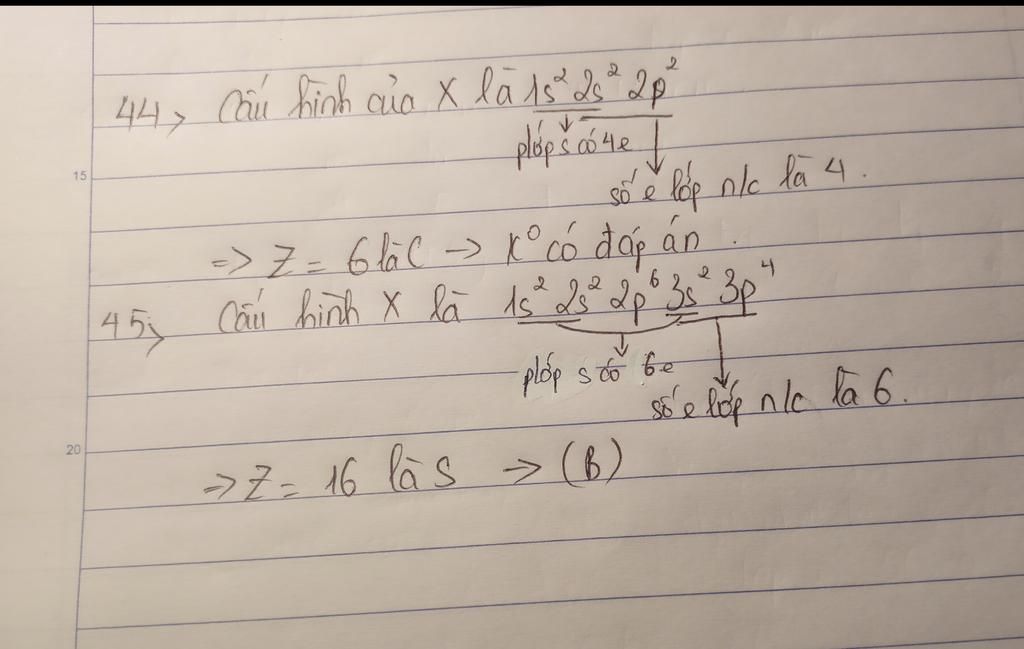 44, Cấu hình của X là 1s² 2s² 2p²
plớp s có 4e
số e lớp n/c là 4.
15
=> Z = 6 là C -> K⁰ có đáp án.
45, Cấu hình X là 1s² 2s² 2p⁶ 3s² 3p⁴
plớp s có 6e
số e lớp n/c là 6.
20
=> Z = 16 là S -> (B)